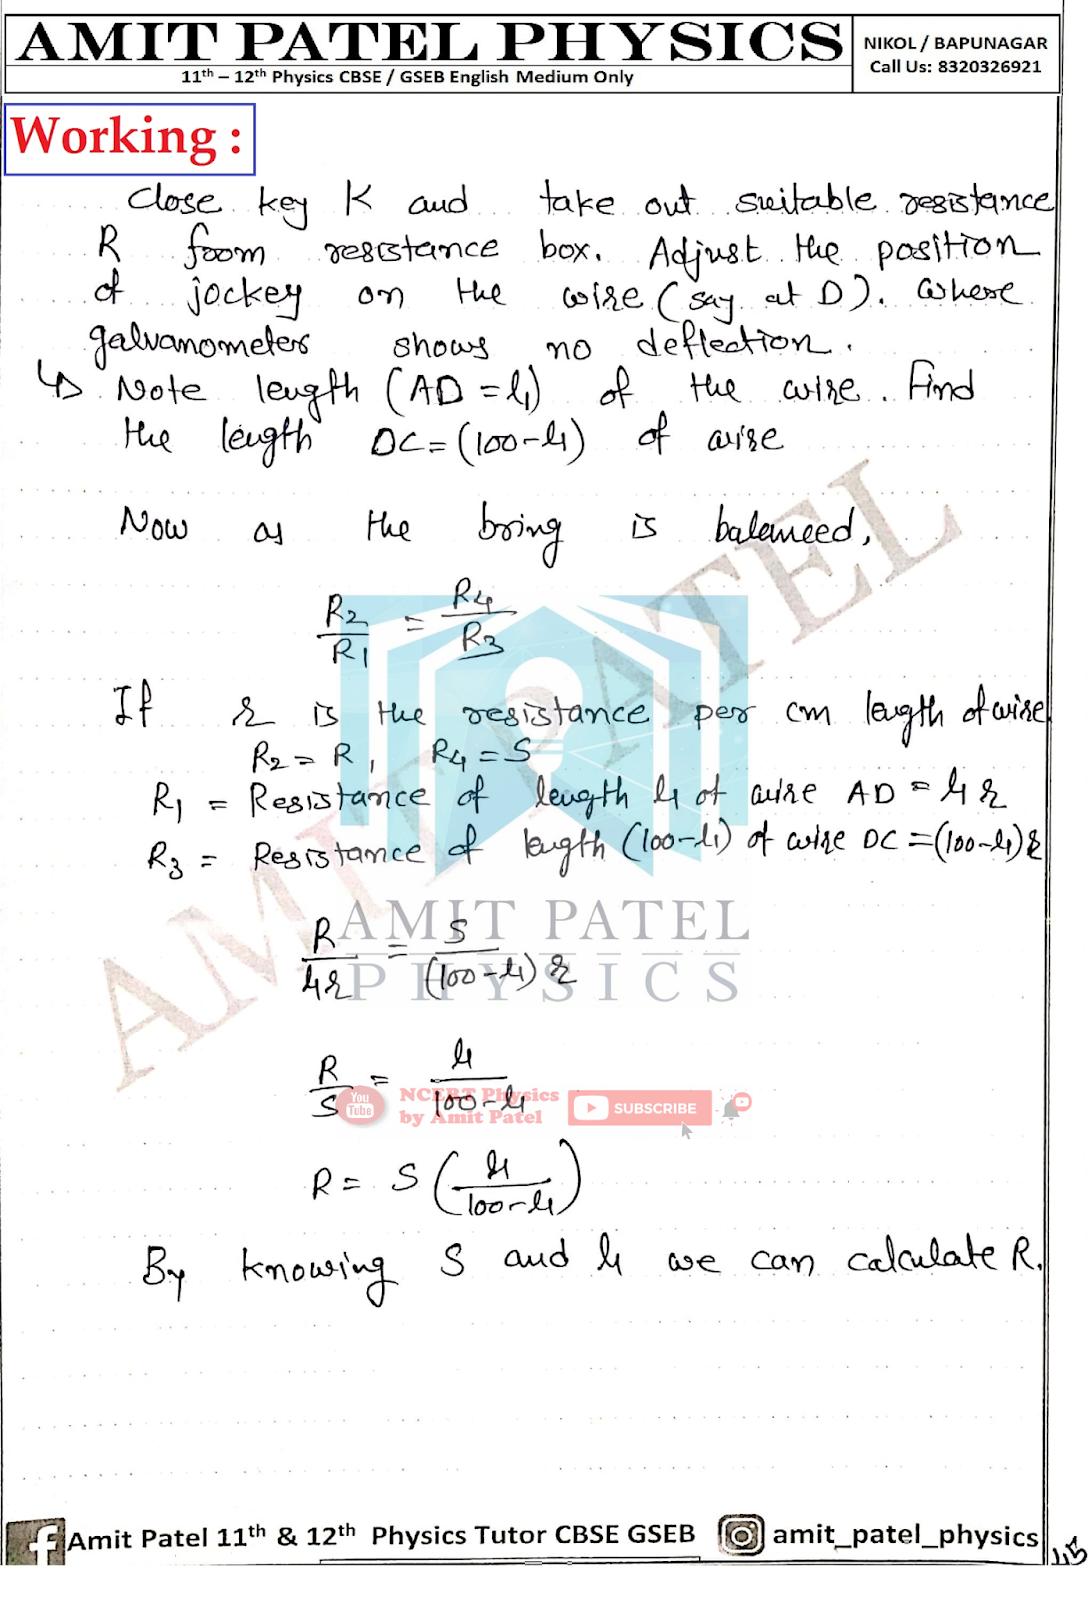 AMIT PATEL PHYSICS
11th – 12th Physics CBSE / GSEB English Medium Only
NIKOL / BAPUNAGAR
Call Us: 8320326921
Working :
Close key K and take out suitable resistance
R from resistance box. Adjust the position
of jockey on the wire (say at D). Where
galvanometers shows no deflection.
↳ Note length (AD = l1) of the wire. Find
the length DC = (100-l1) of wire
Now as the bring is balanced,
R2/R1 = R4/R3
If r is the resistance per cm length of wire
R2 = R, R4 = S
R1 = Resistance of length l1 of wire AD = l1 r
R3 = Resistance of length (100-l1) of wire DC = (100-l1) r
R/l1r = S/(100-l1) r
R/S = l1/100-l1
R = S (l1/100-l1)
By knowing S and l1 we can calculate R.
AMIT PATEL
AMIT PATEL
PHYSICS
You
Tube
NCERT Physics
by Amit Patel
SUBSCRIBE
f Amit Patel 11th & 12th Physics Tutor CBSE GSEB
amit_patel_physics
45